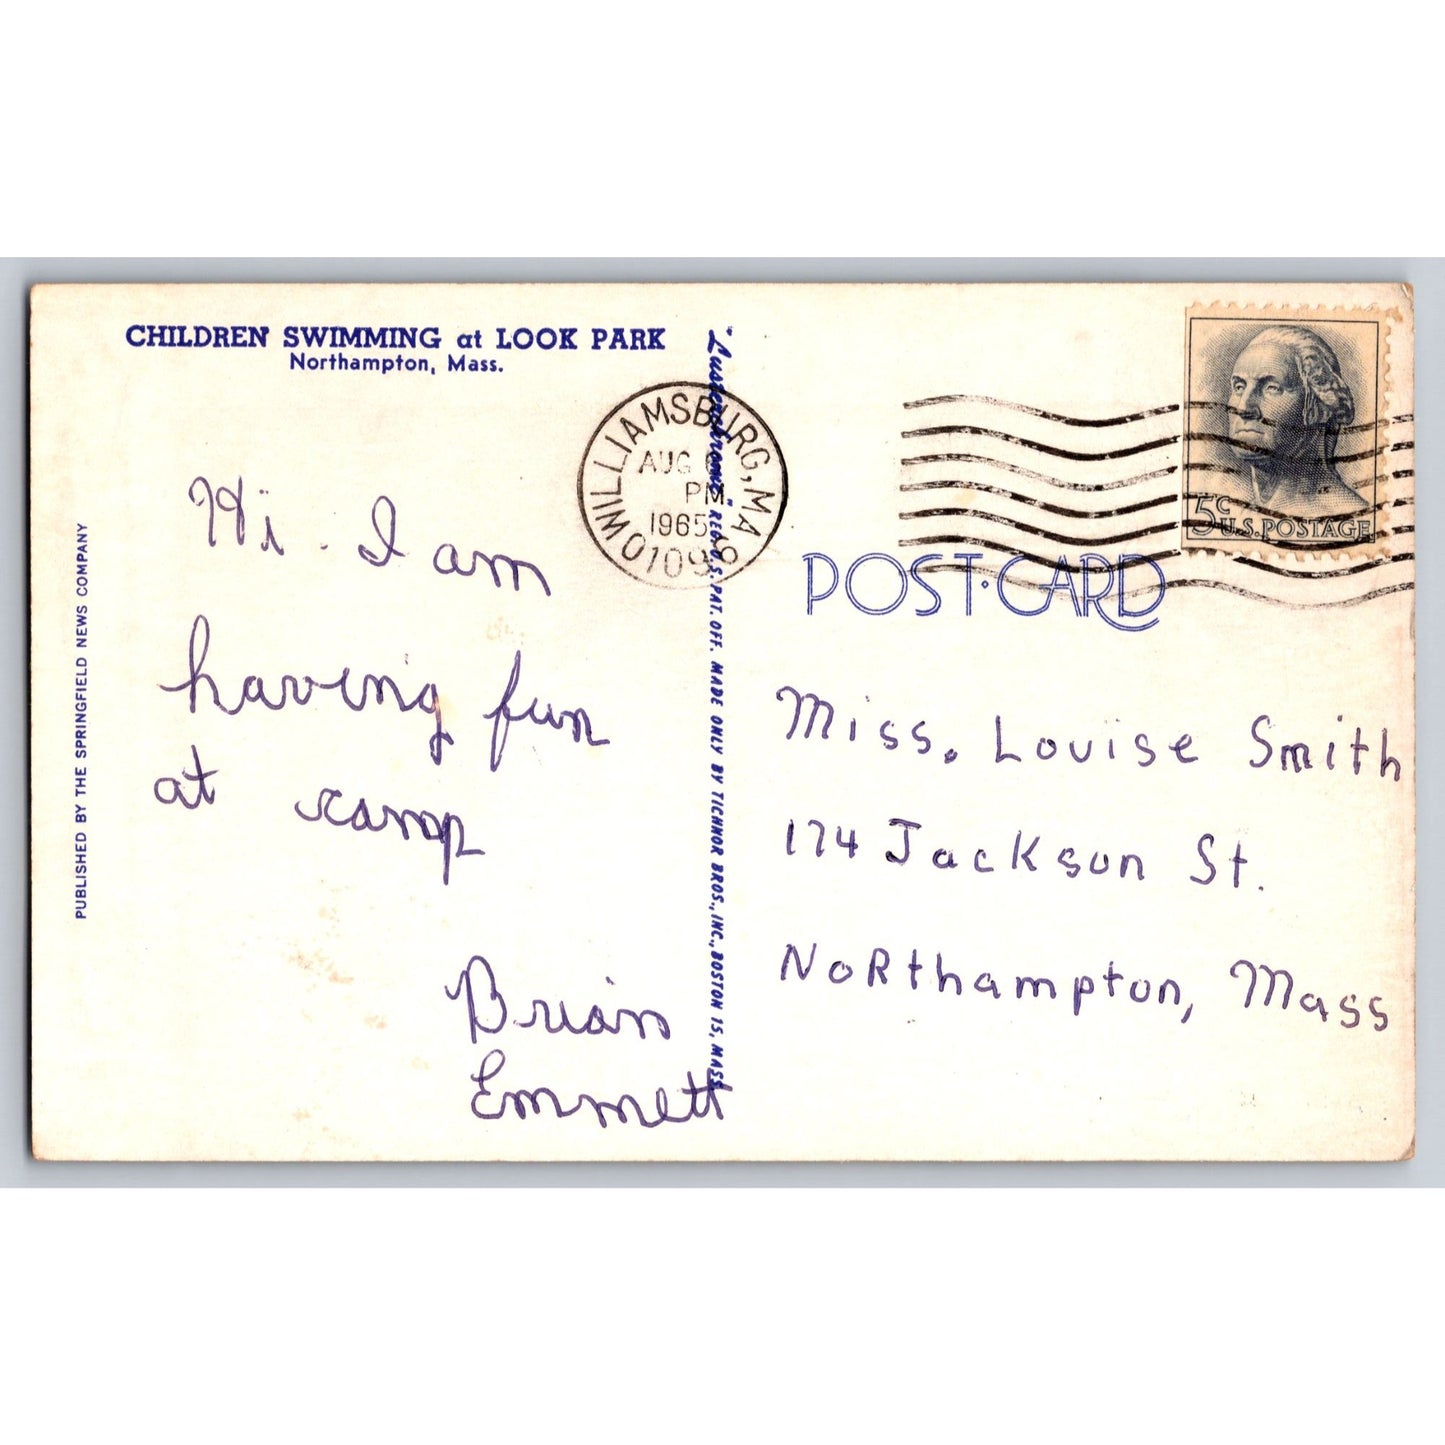 CHILDREN SWIMMING at LOOK PARK
Northampton, Mass.
PUBLISHED BY THE SPRINGFIELD NEWS COMPANY
Hi. I am
having fun
at camp
Brian
Emmett
"Lusterchrome" REG. U.S. PAT. OFF. MADE ONLY BY TICHNOR BROS., INC., BOSTON 15, MASS.
WILLIAMSBURG, MA
AUG
PM
1965
01096
5c
U.S. POSTAGE
POST·CARD
Miss. Louise Smith
174 Jackson St.
Northampton, Mass